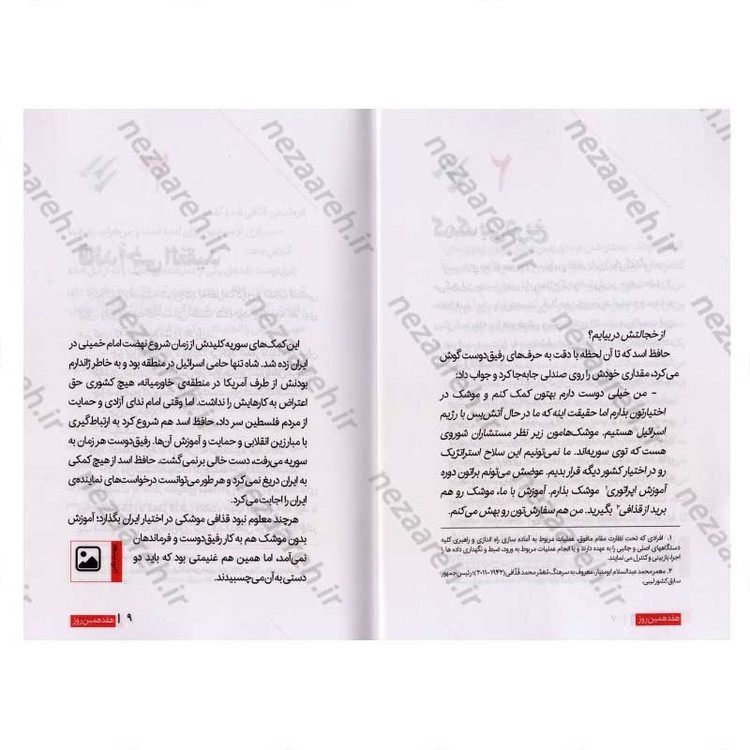 از خجالتش در بیایم؟
حافظ اسد که تا آن لحظه با دقت به حرف‌های رفیق‌دوست گوش
می‌کرد، مقداری خودش را روی صندلی جابه‌جا کرد و جواب داد:
- من خیلی دوست دارم بهتون کمک کنم و موشک در
اختیارتون بذارم اما حقیقت اینه که ما در حال آتش‌بس با رژیم
اسرائیل هستیم. موشک‌هامون زیر نظر مستشاران شوروی
هست که توی سوریه‌اند. ما نمی‌تونیم این سلاح استراتژیک
رو در اختیار کشور دیگه قرار بدیم. عوضش می‌تونم براتون دوره
آموزش اپراتوری¹ موشک بذارم. آموزش با ما، موشک رو هم
برید از قذافی² بگیرید. من هم سفارش‌تون رو بهش می‌کنم.
۱. افرادی که تحت نظارت مقام مافوق، عملیات مربوط به آماده سازی راه اندازی و راهبری کلیه
دستگاههای اصلی و جانبی را به عهده دارند و با انجام عملیات مربوط به ورود، ضبط و نگهداری داده ها
اجرا، بازبینی و کنترل می نمایند.
۲. معمر محمد عبدالسلام ابومنیار، معروف به سرهنگ مُعَمَّر محمد قذّافی (۱۹۴۲-۲۰۱۱)؛ رئیس جمهور
سابق کشور لیبی.
هفدهمین روز
این کمک‌های سوریه کلیدش از زمان شروع نهضت امام خمینی در
ایران زده شد. شاه تنها حامی اسرائیل در منطقه بود و به خاطر ژاندارم
بودنش از طرف آمریکا در منطقه‌ی خاورمیانه، هیچ کشوری حق
اعتراض به کارهایش را نداشت. اما وقتی امام ندای آزادی و حمایت
از مردم فلسطین سر داد، حافظ اسد هم شروع کرد به ارتباط‌گیری
با مبارزین انقلابی و حمایت و آموزش آن‌ها. رفیق‌دوست هر زمان به
سوریه می‌رفت، دست خالی بر نمی‌گشت. حافظ اسد از هیچ کمکی
به ایران دریغ نمی‌کرد و هر طور می‌توانست درخواست‌های نماینده‌ی
ایران را اجابت می‌کرد.
هرچند معلوم نبود قذافی موشکی در اختیار ایران بگذارد؛ آموزش
بدون موشک هم به کار رفیق‌دوست و فرماندهان
نمی‌آمد، اما همین هم غنیمتی بود که باید دو
دستی به آن می‌چسبیدند.
۹ | هفدهمین روز
nezaareh.ir